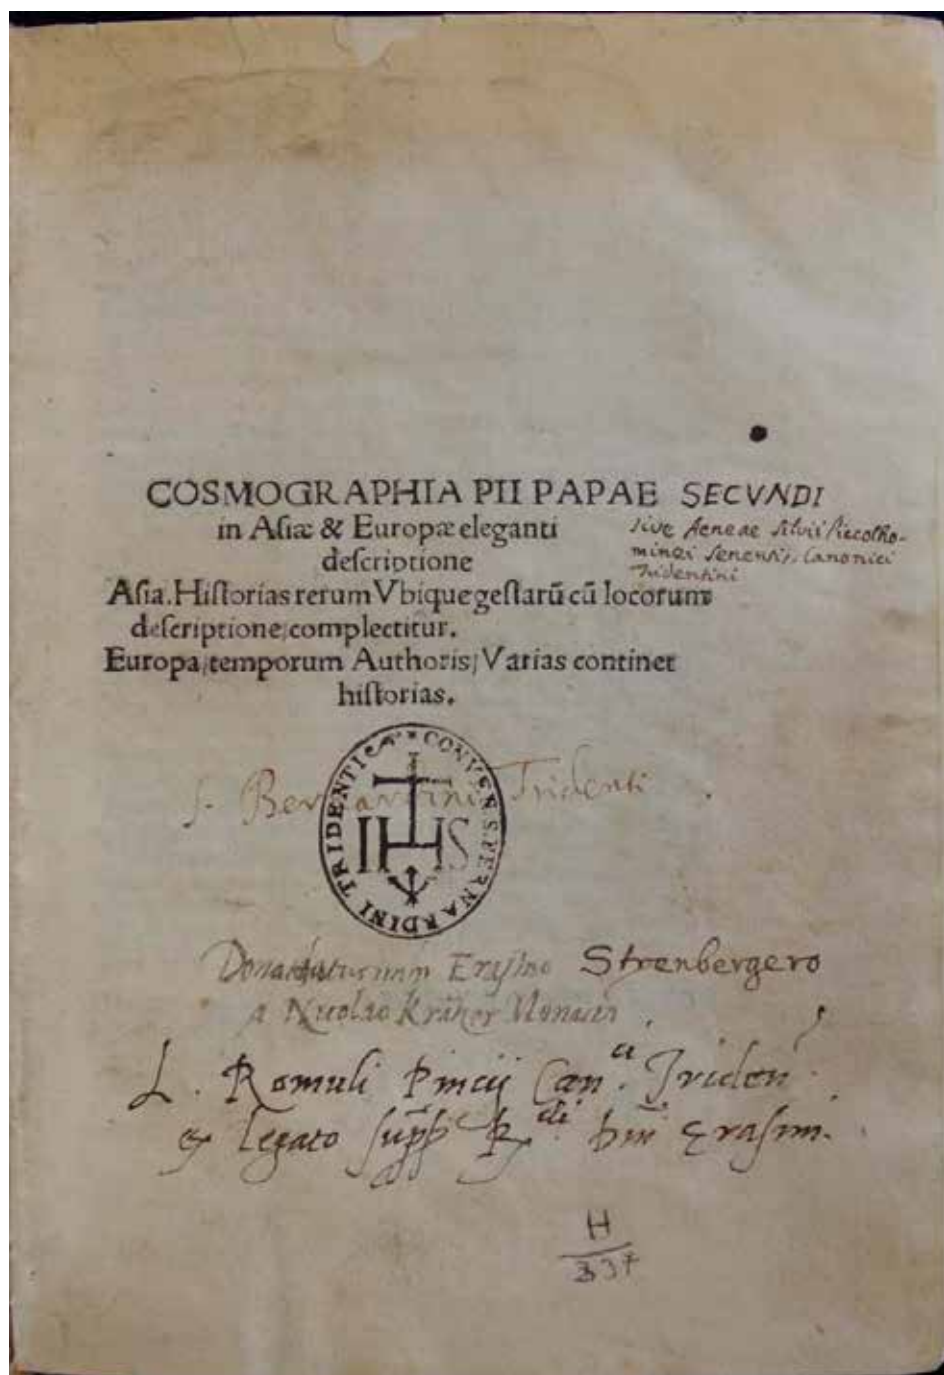 COSMOGRAPHIA PII PAPAE SECVNDI
in Asiæ & Europæ eleganti
descriptione
sive Aeneae Silvii Piccolho-
minei Senensis, Canonici
Tridentini
Asia. Historias rerum Vbique gestarū cū locorum
descriptione complectitur.
Europa temporum Authoris Varias continet
historias.
CONVES S. BERNARDINI TRIDENTI
IHS
S. Bernardini Tridenti
Erasmo Strenbergero
a Nicolao
L. Romuli Pincij Can.ci Triden
ex legato R.di Dni Erasmi.
H
337